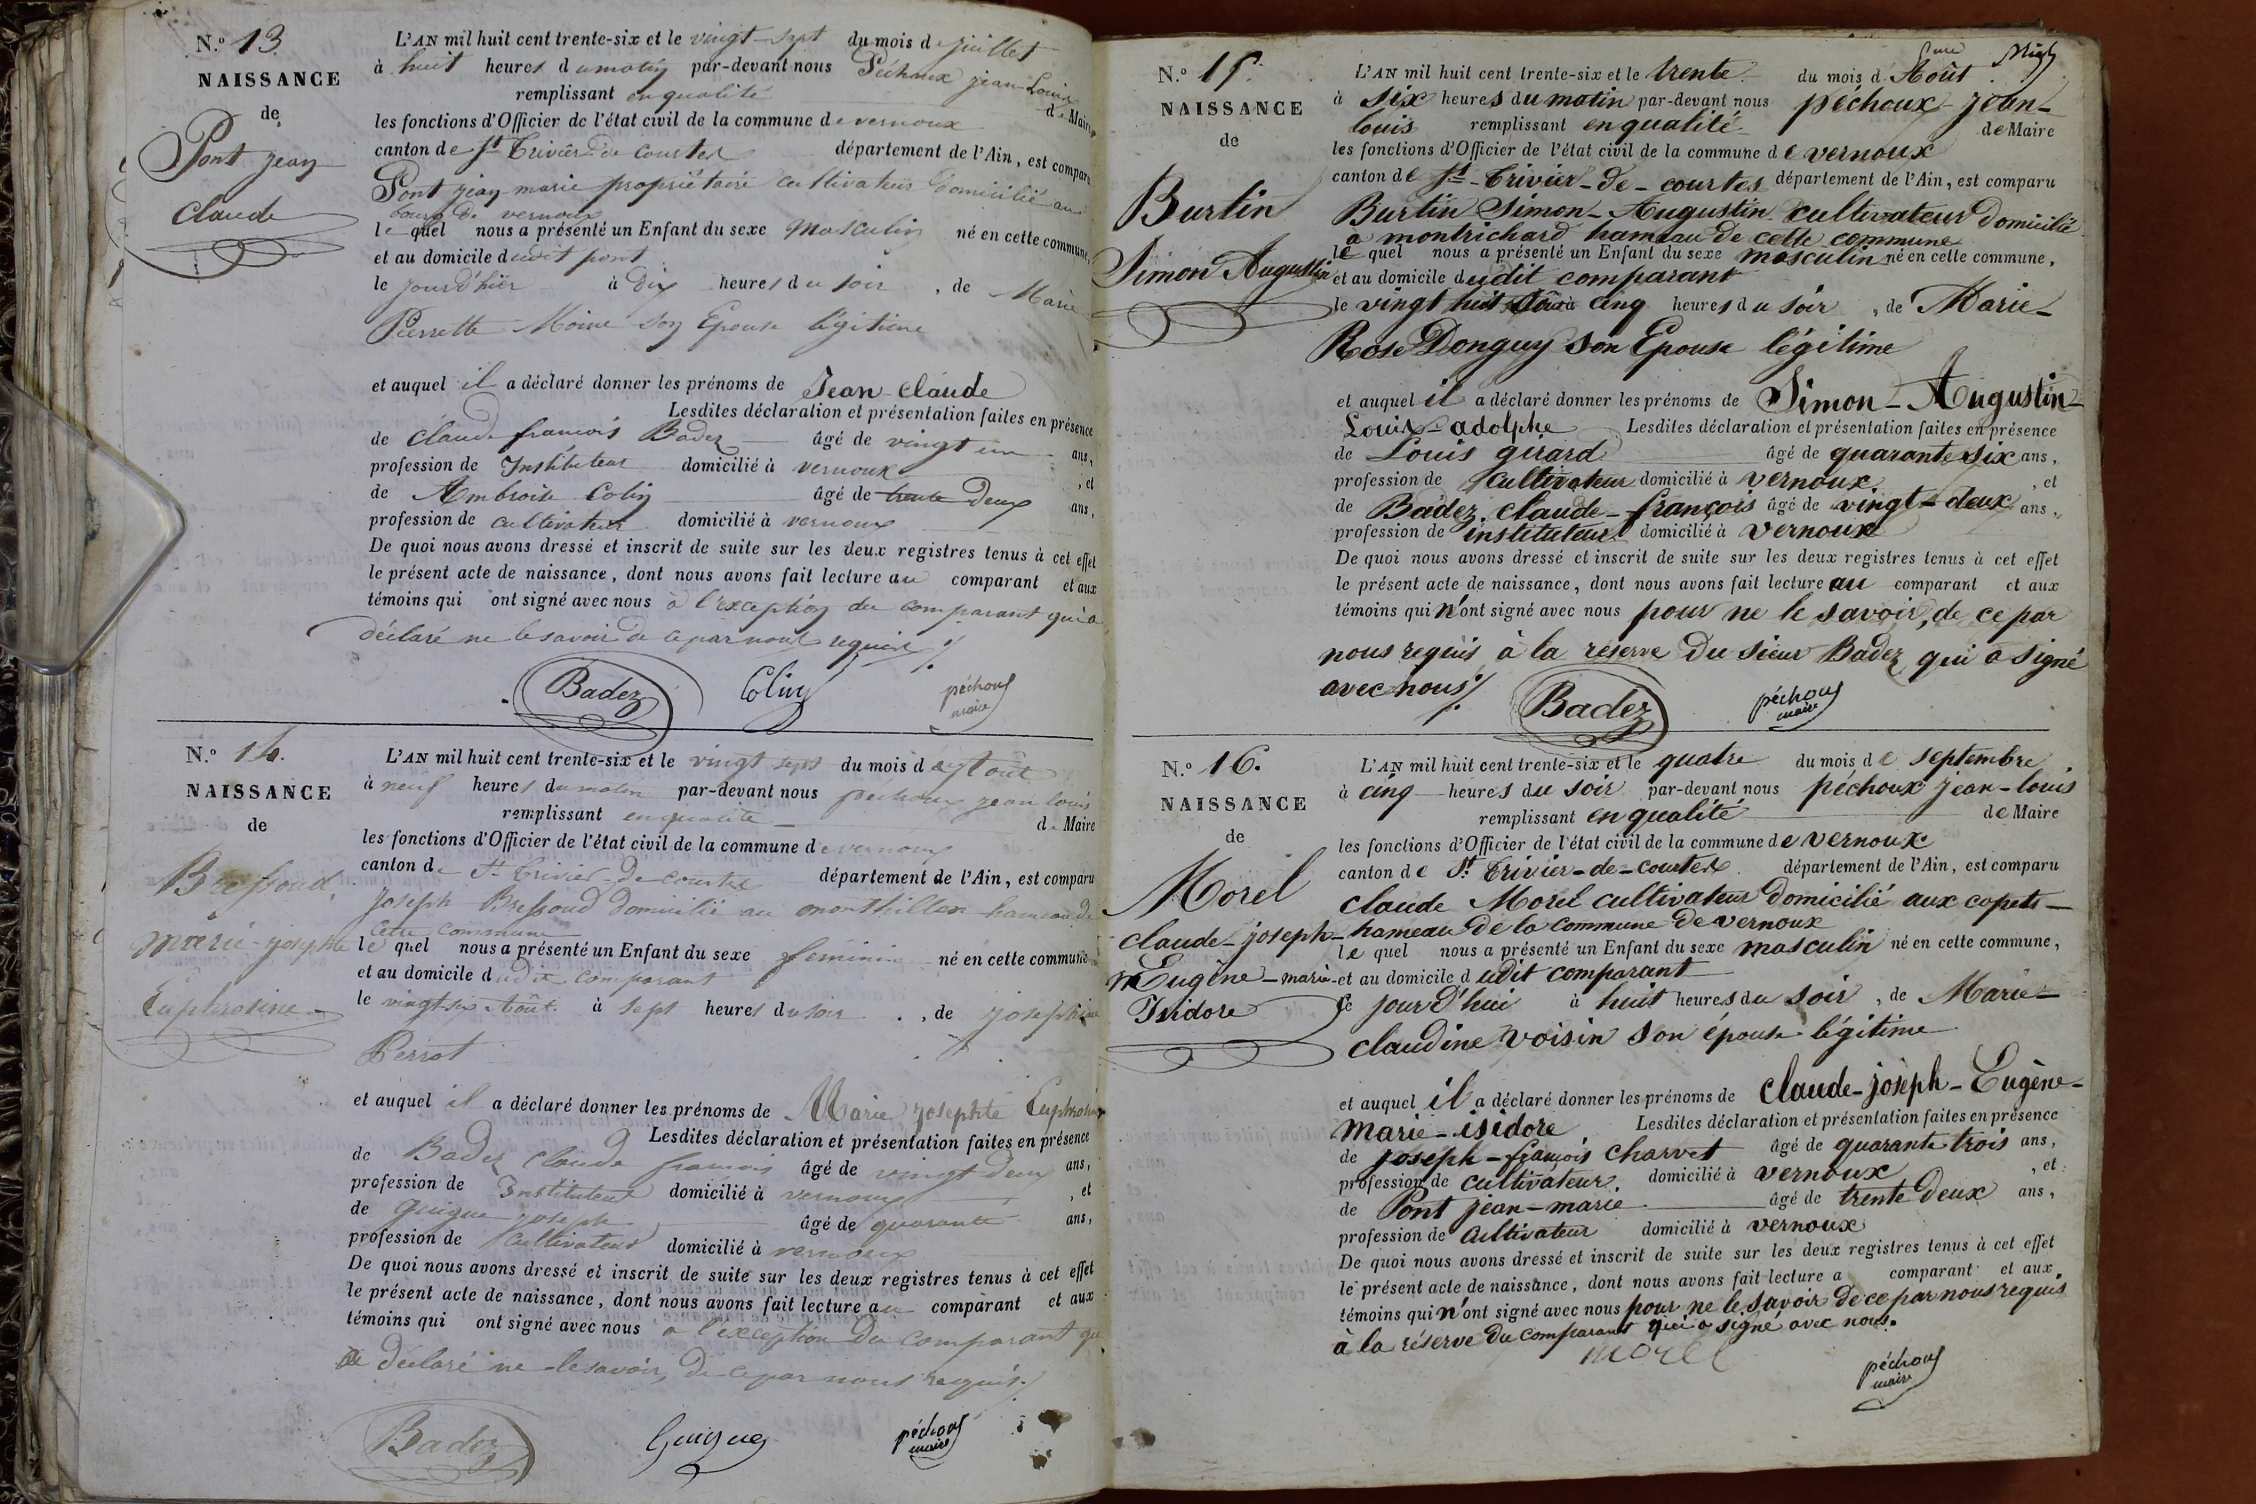 N.º 13.
NAISSANCE
de
Pont jean
Claude
L'AN mil huit cent trente-six et le vingt-sept du mois de juillet
à huit heures du matin par-devant nous Péchoux jean-Louis
remplissant en qualité de Maire
les fonctions d'Officier de l'état civil de la commune de vernoux
canton de St Trivier de Courtes département de l'Ain, est comparu
Pont jean-marie propriétaire cultivateur domicilié au
bourg de vernoux
lequel nous a présenté un Enfant du sexe masculin né en cette commune,
et au domicile dudit pont
le jour d'hier à dix heures du soir, de Marie
Pierrette Moine son Epouse légitime
et auquel il a déclaré donner les prénoms de Jean-claude
Lesdites déclaration et présentation faites en présence
de claude françois Badez âgé de vingt un ans,
profession de Instituteur domicilié à vernoux, et
de Ambroise Colin âgé de trente deux ans,
profession de cultivateur domicilié à vernoux
De quoi nous avons dressé et inscrit de suite sur les deux registres tenus à cet effet
le présent acte de naissance, dont nous avons fait lecture au comparant et aux
témoins qui ont signé avec nous à l'exception du comparant qui a
déclaré ne le savoir de ce par nous requis
Badez Colin péchoux
maire
N.º 14.
NAISSANCE
de
Bressoud
marie-josephte
Euphrosine
L'AN mil huit cent trente-six et le vingt sept du mois d'août
à neuf heures du matin par-devant nous péchoux jean louis
remplissant en qualité de Maire
les fonctions d'Officier de l'état civil de la commune de vernoux
canton de St Trivier-de-courtes département de l'Ain, est comparu
Joseph Bressoud domicilié au hameau de
cette commune
lequel nous a présenté un Enfant du sexe féminin né en cette commune
et au domicile dudit comparant
le vingt-six Août à sept heures du soir, de josephine
Perrot
et auquel il a déclaré donner les prénoms de Marie josephte Euphrosine
Lesdites déclaration et présentation faites en présence
de Badez claude françois âgé de vingt deux ans,
profession de Instituteur domicilié à vernoux, et
de guigue joseph âgé de quarante ans,
profession de Cultivateur domicilié à vernoux
De quoi nous avons dressé et inscrit de suite sur les deux registres tenus à cet effet
le présent acte de naissance, dont nous avons fait lecture au comparant et aux
témoins qui ont signé avec nous à l'exception du comparant qui
déclaré ne le savoir, de ce par nous requis.
Badez Guigue péchoux
maire
N.º 15.
NAISSANCE
de
Burtin
Simon Augustin
L'AN mil huit cent trente-six et le trente du mois d'Août
à six heures du matin par-devant nous péchoux-jean-
louis remplissant en qualité de Maire
les fonctions d'Officier de l'état civil de la commune de vernoux
canton de St-Trivier-de-courtes département de l'Ain, est comparu
Burtin Simon-Augustin cultivateur domicilié
a montrichard hameau de cette commune
lequel nous a présenté un Enfant du sexe masculin né en cette commune,
et au domicile dudit comparant
le vingt huit Août à cinq heures du soir, de Marie-
Rose Donguy son Epouse légitime
et auquel il a déclaré donner les prénoms de Simon-Augustin-
Louis-adolphe Lesdites déclaration et présentation faites en présence
de Louis girard âgé de quarante six ans,
profession de cultivateur domicilié à vernoux, et
de Badez claude-françois âgé de vingt-deux ans,
profession de instituteur domicilié à vernoux
De quoi nous avons dressé et inscrit de suite sur les deux registres tenus à cet effet
le présent acte de naissance, dont nous avons fait lecture au comparant et aux
témoins qui n'ont signé avec nous pour ne le savoir, de ce par
nous requis à la réserve du sieur Badez qui a signé
avec nous
Badez péchoux
maire
N.º 16.
NAISSANCE
de
Morel
claude-joseph-
Eugène-marie-
Isidore
L'AN mil huit cent trente-six et le quatre du mois de septembre
à cinq heures du soir par-devant nous péchoux jean-louis
remplissant en qualité de Maire
les fonctions d'Officier de l'état civil de la commune de vernoux
canton de St Trivier-de-courtes département de l'Ain, est comparu
claude Morel cultivateur domicilié aux copets-
hameau de la commune de vernoux
lequel nous a présenté un Enfant du sexe masculin né en cette commune,
et au domicile dudit comparant
le jour d'hui à huit heures du soir, de Marie-
claudine voisin son épouse légitime
et auquel il a déclaré donner les prénoms de claude-joseph-Eugène-
marie-isidore Lesdites déclaration et présentation faites en présence
de joseph-françois charvet âgé de quarante trois ans,
profession de cultivateur domicilié à vernoux, et
de Pont jean-marie âgé de trente deux ans,
profession de cultivateur domicilié à vernoux
De quoi nous avons dressé et inscrit de suite sur les deux registres tenus à cet effet
le présent acte de naissance, dont nous avons fait lecture a comparant et aux
témoins qui n'ont signé avec nous pour ne le savoir de ce par nous requis
à la réserve du comparant qui a signé avec nous.
morel péchoux
maire